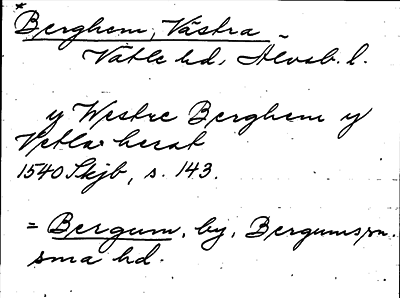 * Berghem, Västra -
Vätle hd, Älvsb. l.
y Westre Berghem y
Vetla herat
1540 Skjb, s. 143.
= Bergum, by, Bergums sn.
sma hd.